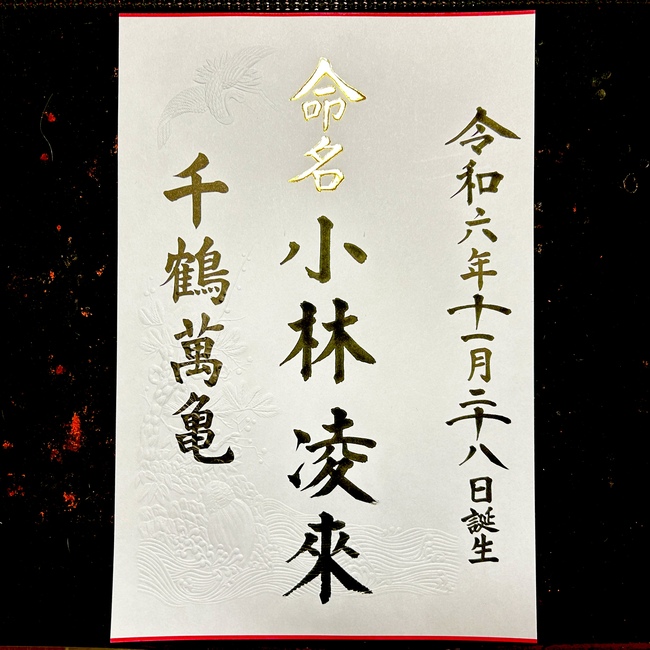 令和六年十一月二十八日誕生
命名
小林 凌來
千鶴萬亀